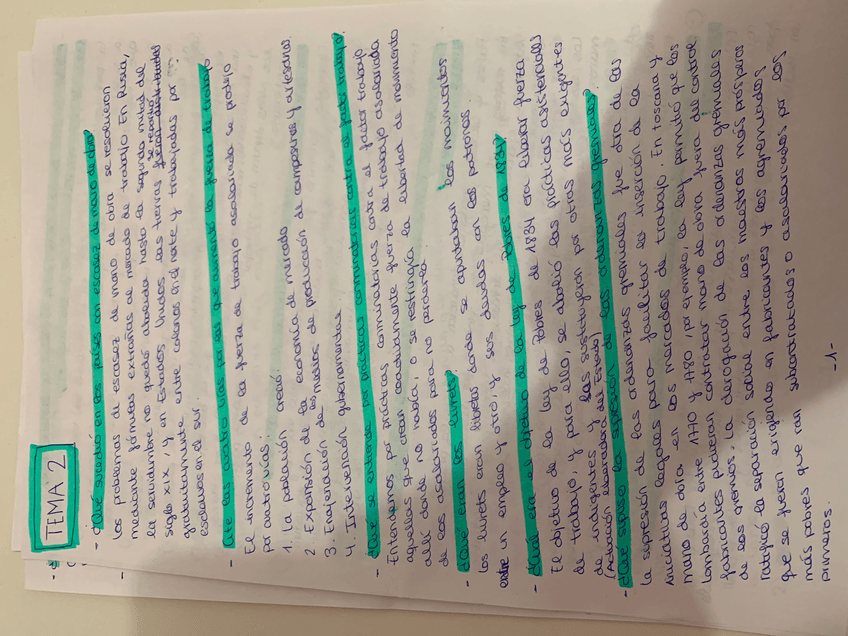 TEMA 2
- ¿Qué sucedió en los países con escasez de mano de obra?
Los problemas de escasez de mano de obra se resolvieron
mediante fórmulas extrañas al mercado de trabajo. En Rusia,
la servidumbre no quedó abolida hasta la segunda mitad del
siglo XIX, y en Estados Unidos las tierras se repartió
gratuitamente entre colonos en el norte y trabajadas por
esclavos en el sur.
- Cite las cuatro vías por las que aumentó la fuerza de trabajo
El incremento de la fuerza de trabajo asalariada se produjo
por cuatro vías:
1. La población creció.
2. Expansión de la economía de mercado
3. Enajenación de los medios de producción de campesinos y artesanos
4. Intervención gubernamental.
- ¿Qué se entiende por prácticas conminatorias contra el factor trabajo?
Entendemos por prácticas conminatorias contra el factor trabajo
aquellas que crean coactivamente fuerza de trabajo asalariada
allí donde no había, o se restringía la libertad de movimiento
de los asalariados para no perderla.
- ¿Qué eran los livrets?
Los livrets eran libretas donde se apuntaban los movimientos
entre un empleo y otro, y sus deudas con los patronos.
- ¿Cuál era el objetivo de la Ley de Pobres de 1834?
El objetivo de la Ley de Pobres de 1834 era liberar fuerza
de trabajo, y para ello, se abolió las prácticas asistenciales
de indigentes y las sustituyeron por otras más exigentes
(Actuación liberadora del Estado)
- ¿Qué supuso la supresión de las ordenanzas gremiales?
La supresión de las ordenanzas gremiales fue otra de las
iniciativas legales para facilitar la inserción de la
mano de obra en los mercados de trabajo. En Toscana y
Lombardía entre 1770 y 1780, por ejemplo, la ley permitió que los
fabricantes pudieran contratar mano de obra fuera del control
de los gremios. La derogación de las ordenanzas gremiales
ratificó la separación social entre los maestros más prósperos
que se fueron erigiendo en fabricantes y los agremiados
más pobres que eran subcontratados o asalariados por los
primeros.
-1-